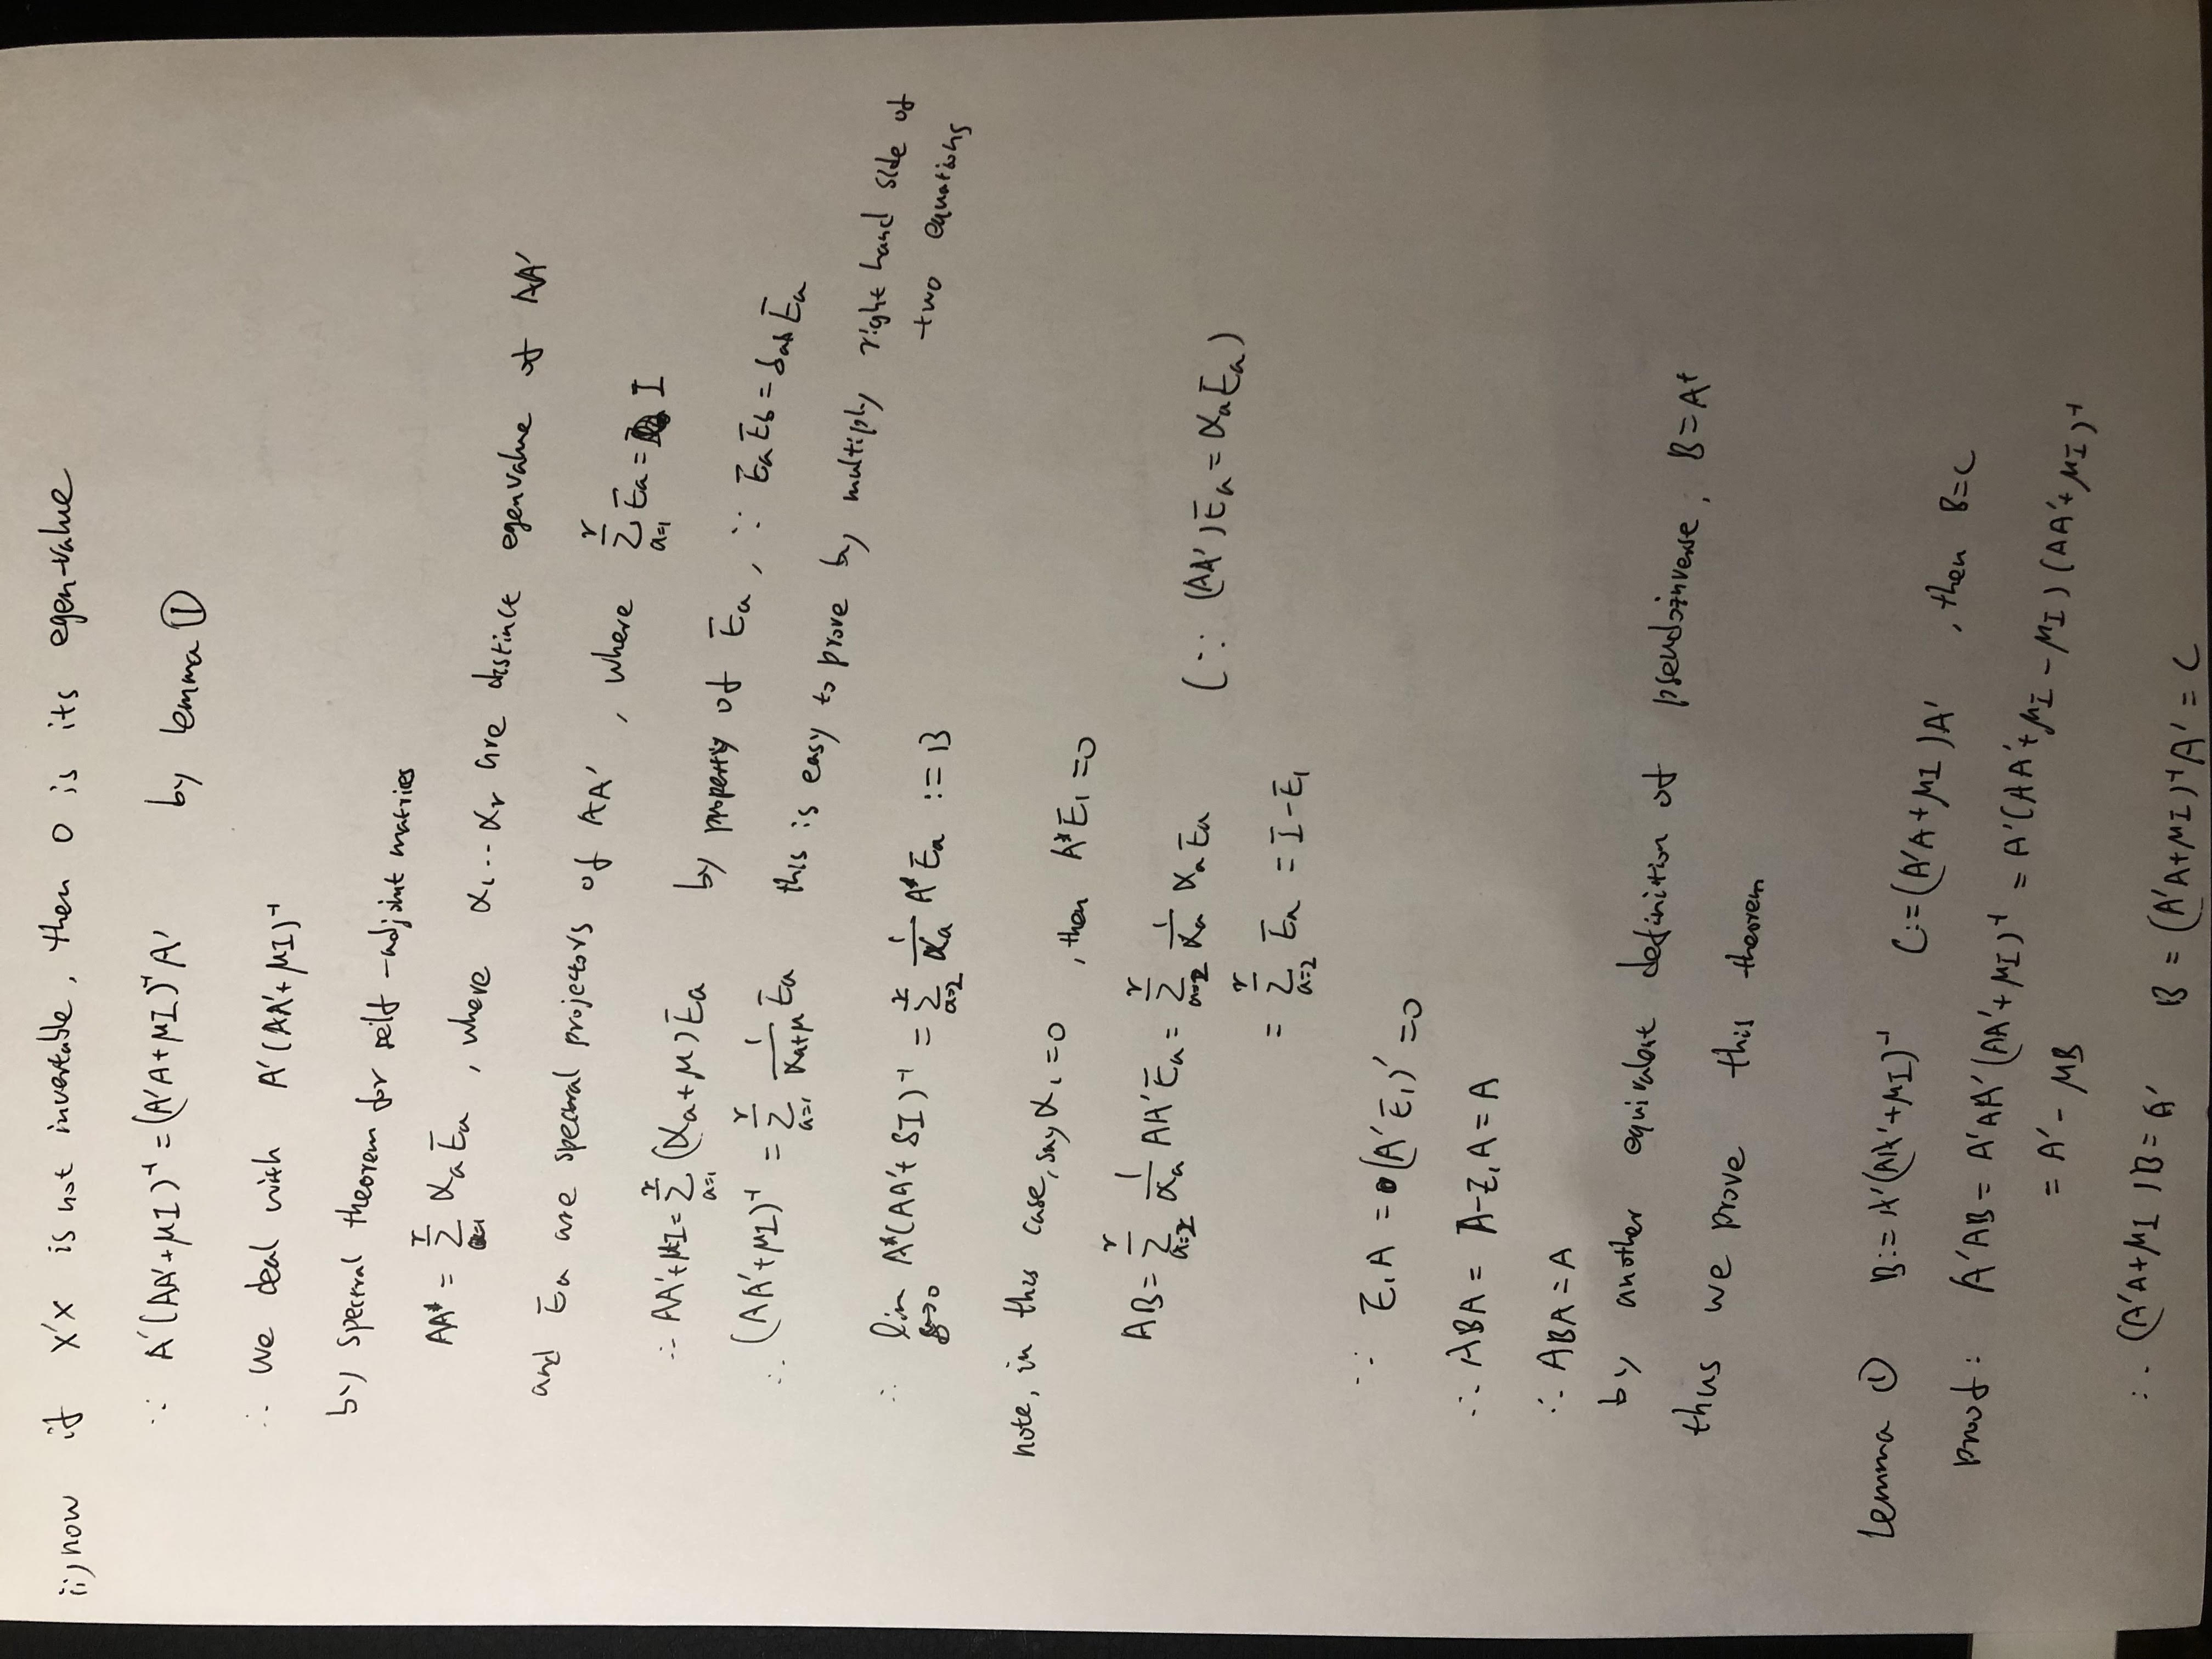 ii) now if X'X is not invertable, then 0 is its egen-value
∵ A'(AA'+μI)⁻¹ = (A'A+μI)⁻¹A' by lemma ①
∴ we deal with A'(AA'+μI)⁻¹
by spectral theorem for self-adjoint matries
AA* = Σ_{a=1}^{r} αₐEₐ , where α₁...αᵣ are distince egenvalue of AA'
and Eₐ are spectral projectors of AA' , where Σ_{a=1}^{r} Eₐ = I
∴ AA'+μI = Σ_{a=1}^{r} (αₐ+μ)Eₐ by property of Eₐ, ∵ EₐE_b = δ_{ab}Eₐ
∴ (AA'+μI)⁻¹ = Σ_{a=1}^{r} 1/(αₐ+μ) Eₐ this is easy to prove by multiply right hand side of
two equations
∴ lim_{δ→0} A*(AA'+δI)⁻¹ = Σ_{a=2}^{r} 1/αₐ A*Eₐ := B
note, in this case, say α₁=0 , then A*E₁=0
AB = Σ_{a=2}^{r} 1/αₐ AA'Eₐ = Σ_{a=2}^{r} 1/αₐ αₐEₐ (∵ (AA')Eₐ = αₐEₐ)
= Σ_{a=2}^{r} Eₐ = I - E₁
∵ E₁A = (A'E₁)' = 0
∴ ABA = A - E₁A = A
∴ ABA = A
by another equivalent definition of pseudoinverse, B=A⁺
thus we prove this theorem
Lemma ① B:= A'(AA'+μI)⁻¹ C:= (A'A+μI)A' , then B=C
proof: A'AB = A'AA'(AA'+μI)⁻¹ = A'(AA'+μI-μI)(AA'+μI)⁻¹
= A' - μB
∴ (A'A+μI)B = A' B = (A'A+μI)⁻¹A' = C